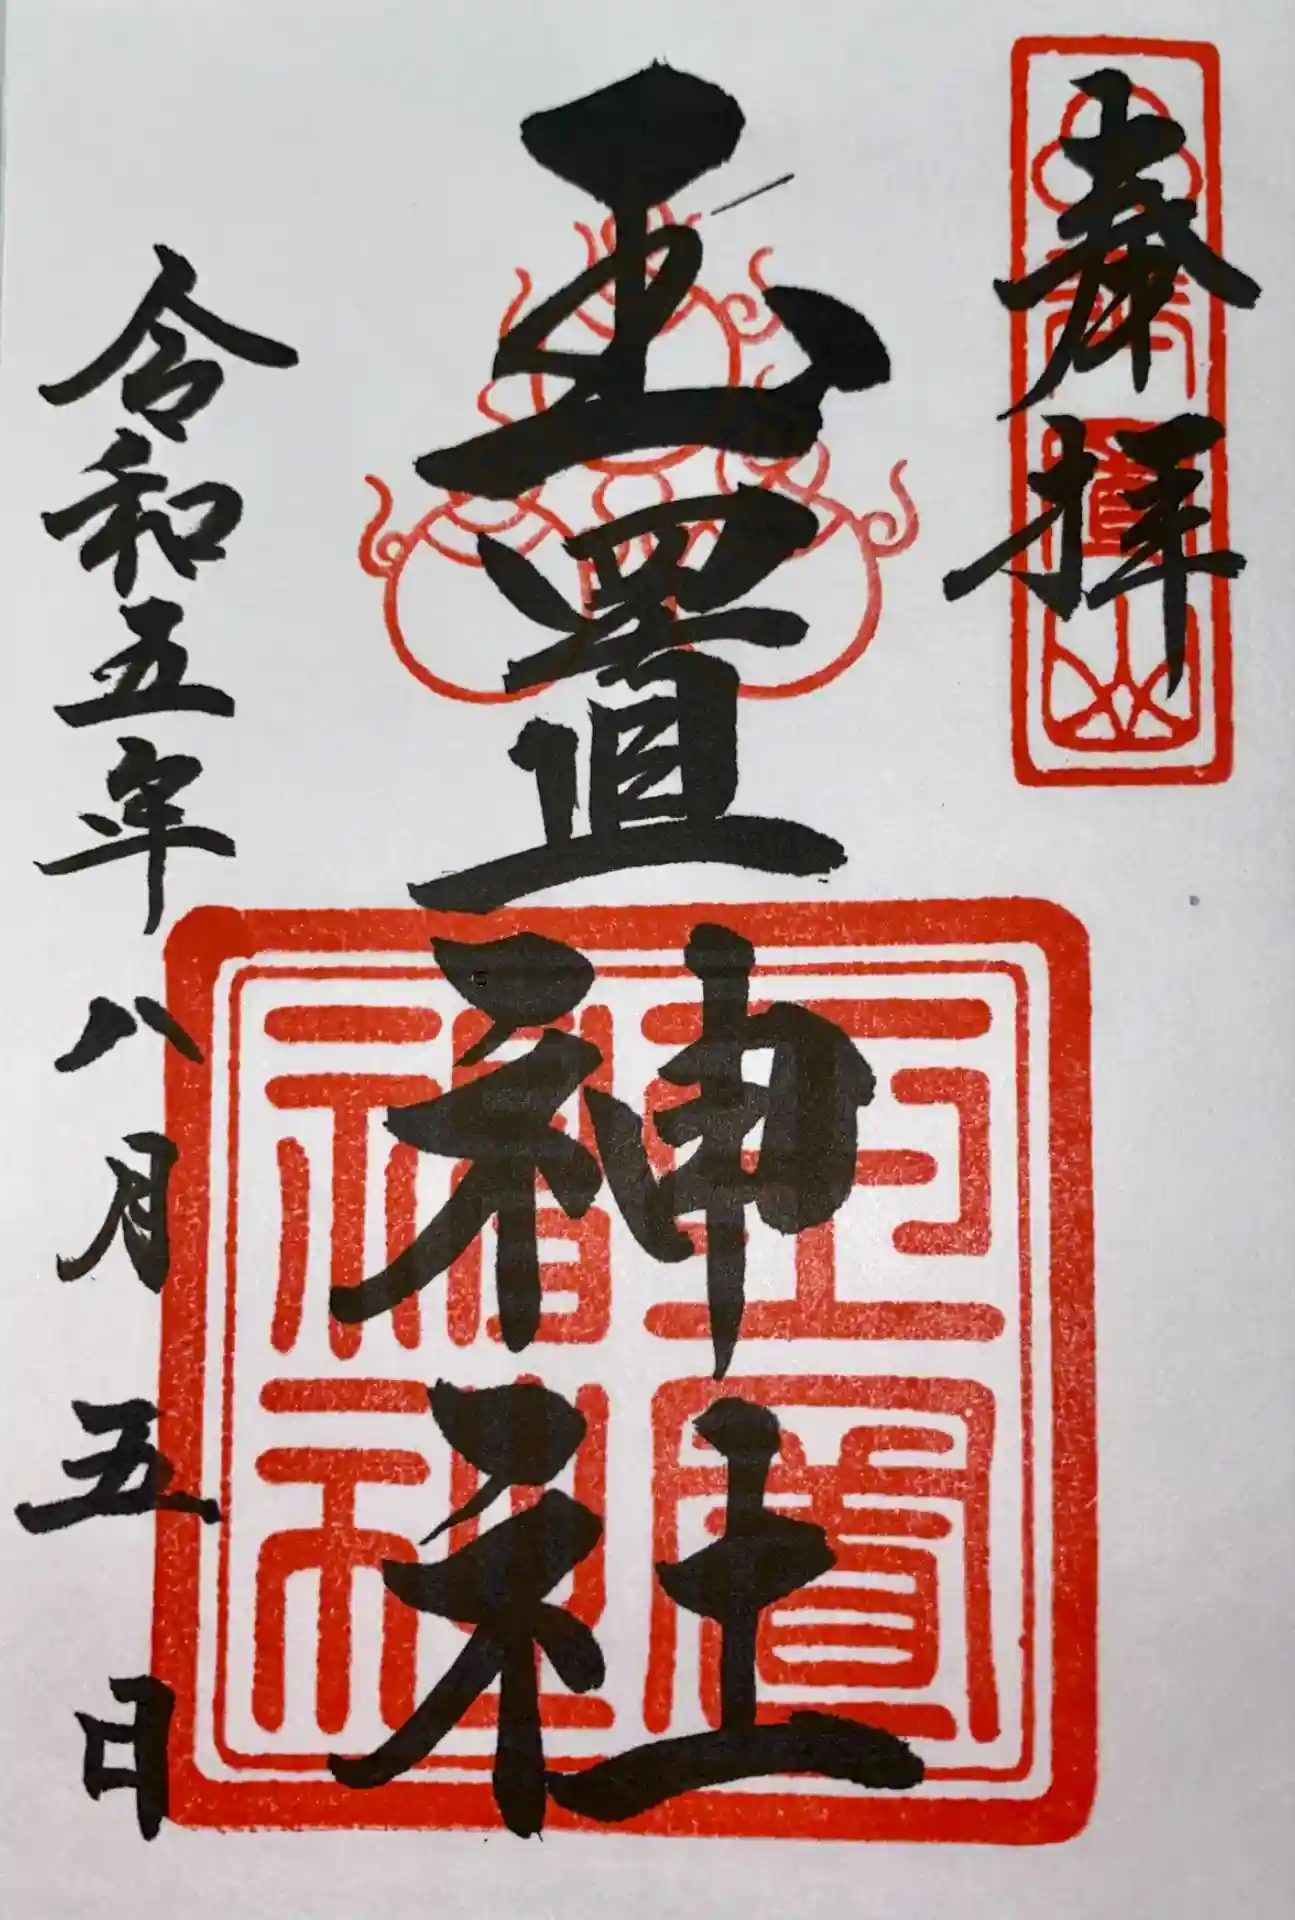 奉拝
玉置神社
令和五年八月五日
玉置
神社